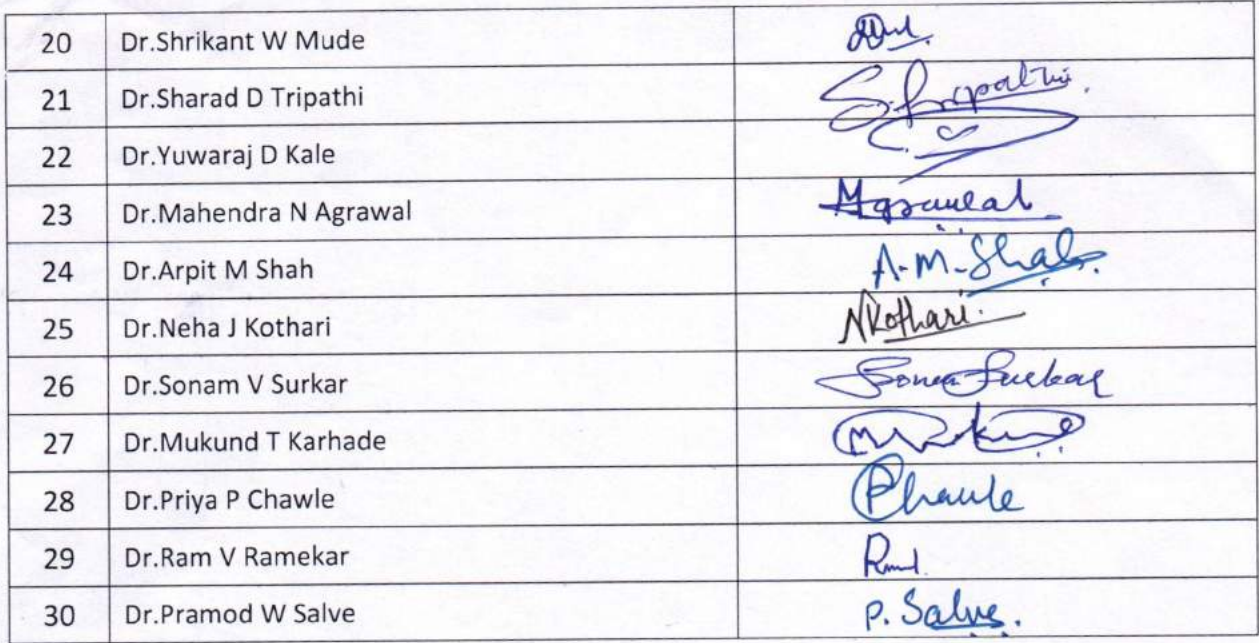 20 Dr.Shrikant W Mude
21 Dr.Sharad D Tripathi S.Tripathi.
22 Dr.Yuwaraj D Kale
23 Dr.Mahendra N Agrawal Magrawal
24 Dr.Arpit M Shah A.M.Shah.
25 Dr.Neha J Kothari NKothari.
26 Dr.Sonam V Surkar Sonam Surkar
27 Dr.Mukund T Karhade Mukund
28 Dr.Priya P Chawle PChawle
29 Dr.Ram V Ramekar
30 Dr.Pramod W Salve P. Salve.